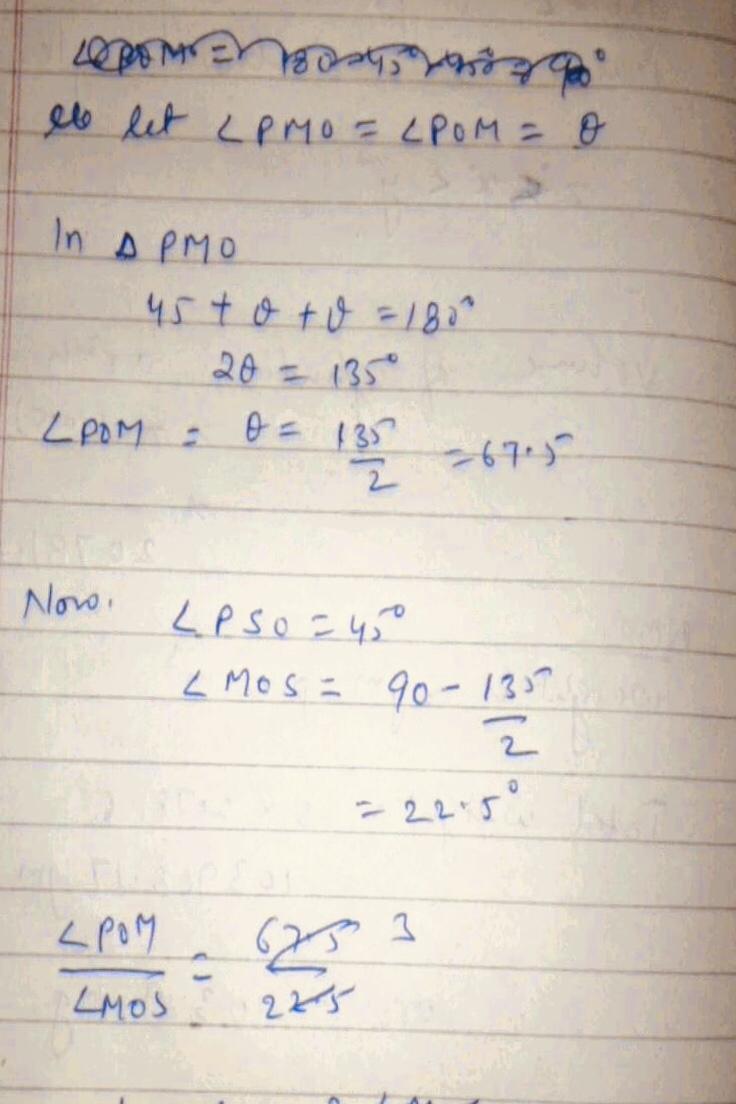 ∠POM = 180-45°-45° = 90°
let ∠PMO = ∠POM = θ
In Δ PMO
45 + θ + θ = 180°
2θ = 135°
∠POM = θ = 135/2 = 67.5
Now. ∠PSO = 45°
∠MOS = 90 - 135/2
= 22.5°
∠POM/∠MOS = 67.5/22.5 3